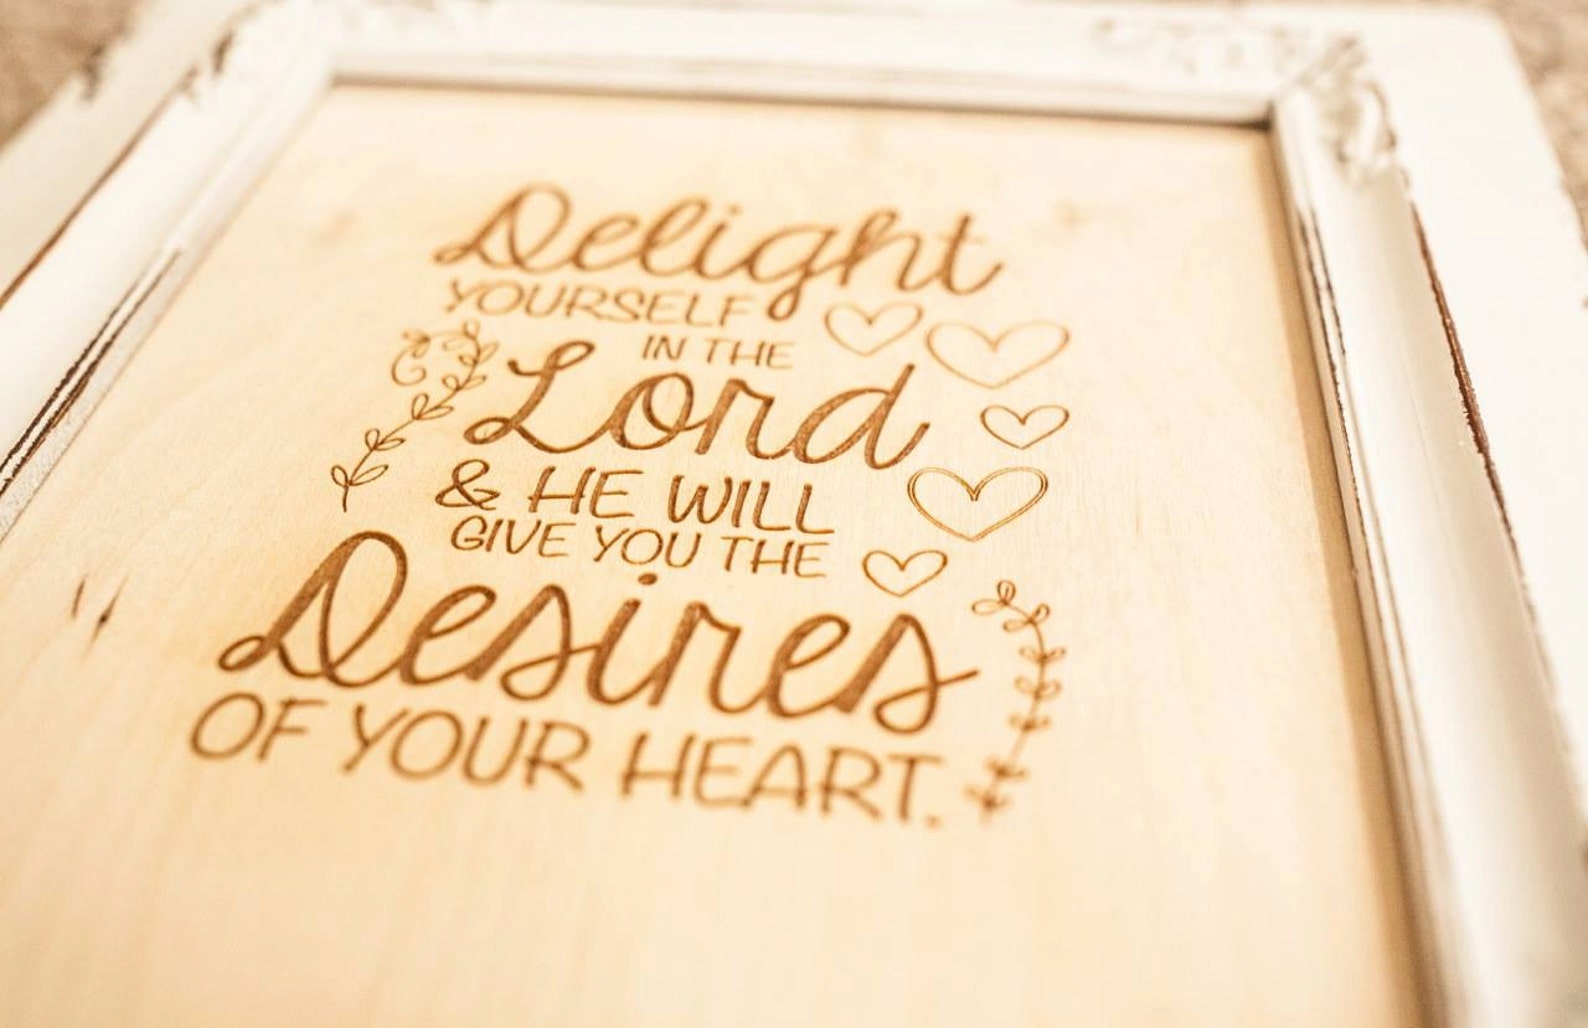 Delight
YOURSELF
IN THE
Lord
& HE WILL
GIVE YOU THE
Desires
OF YOUR HEART.